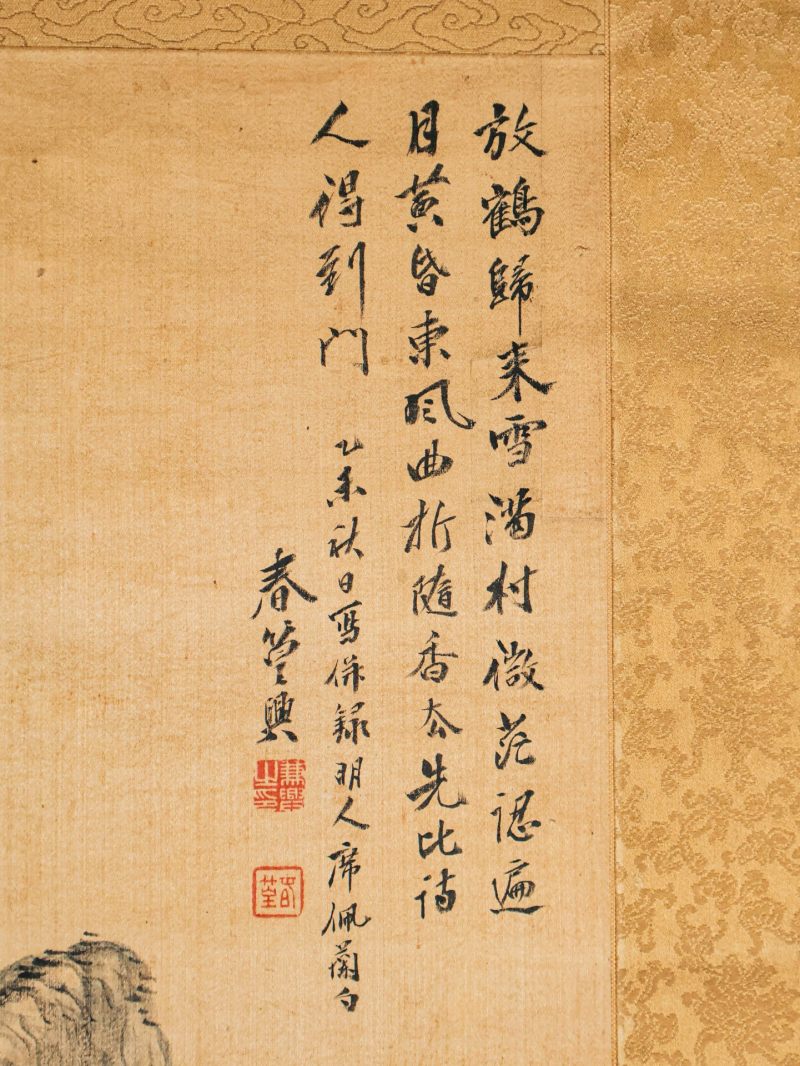 放鶴歸来雪滿村微茫認遍
月黄昏東風曲折隨香去先比詩
人得到門 乙未秋日寫併録明人席佩蘭句
春 興